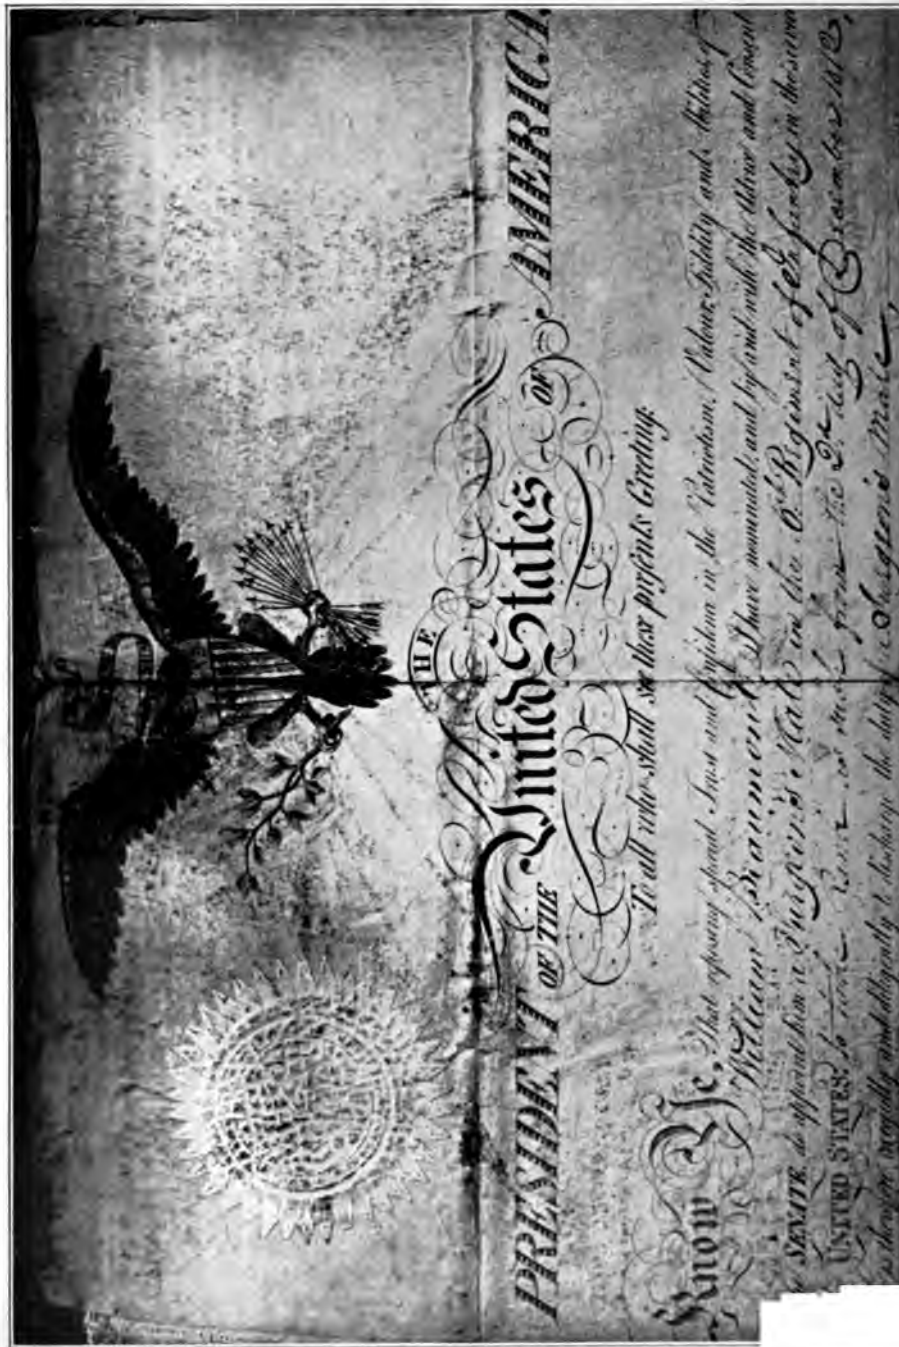 THE
PRESIDENT OF THE United States OF AMERICA,
To all who shall see these presents Greeting:
Know Ye, That reposing special Trust and Confidence in the Patriotism, Valour, Fidelity and Abilities of
William Beaumont I have nominated, and by and with the Advice and Consent
SENATE do appoint him a Surgeon's Mate in the Regiment of Infantry in the service
UNITED STATES: to rank as such from the 2d day of December 1812,
therefore carefully and diligently to discharge the duty of Surgeon's Mate